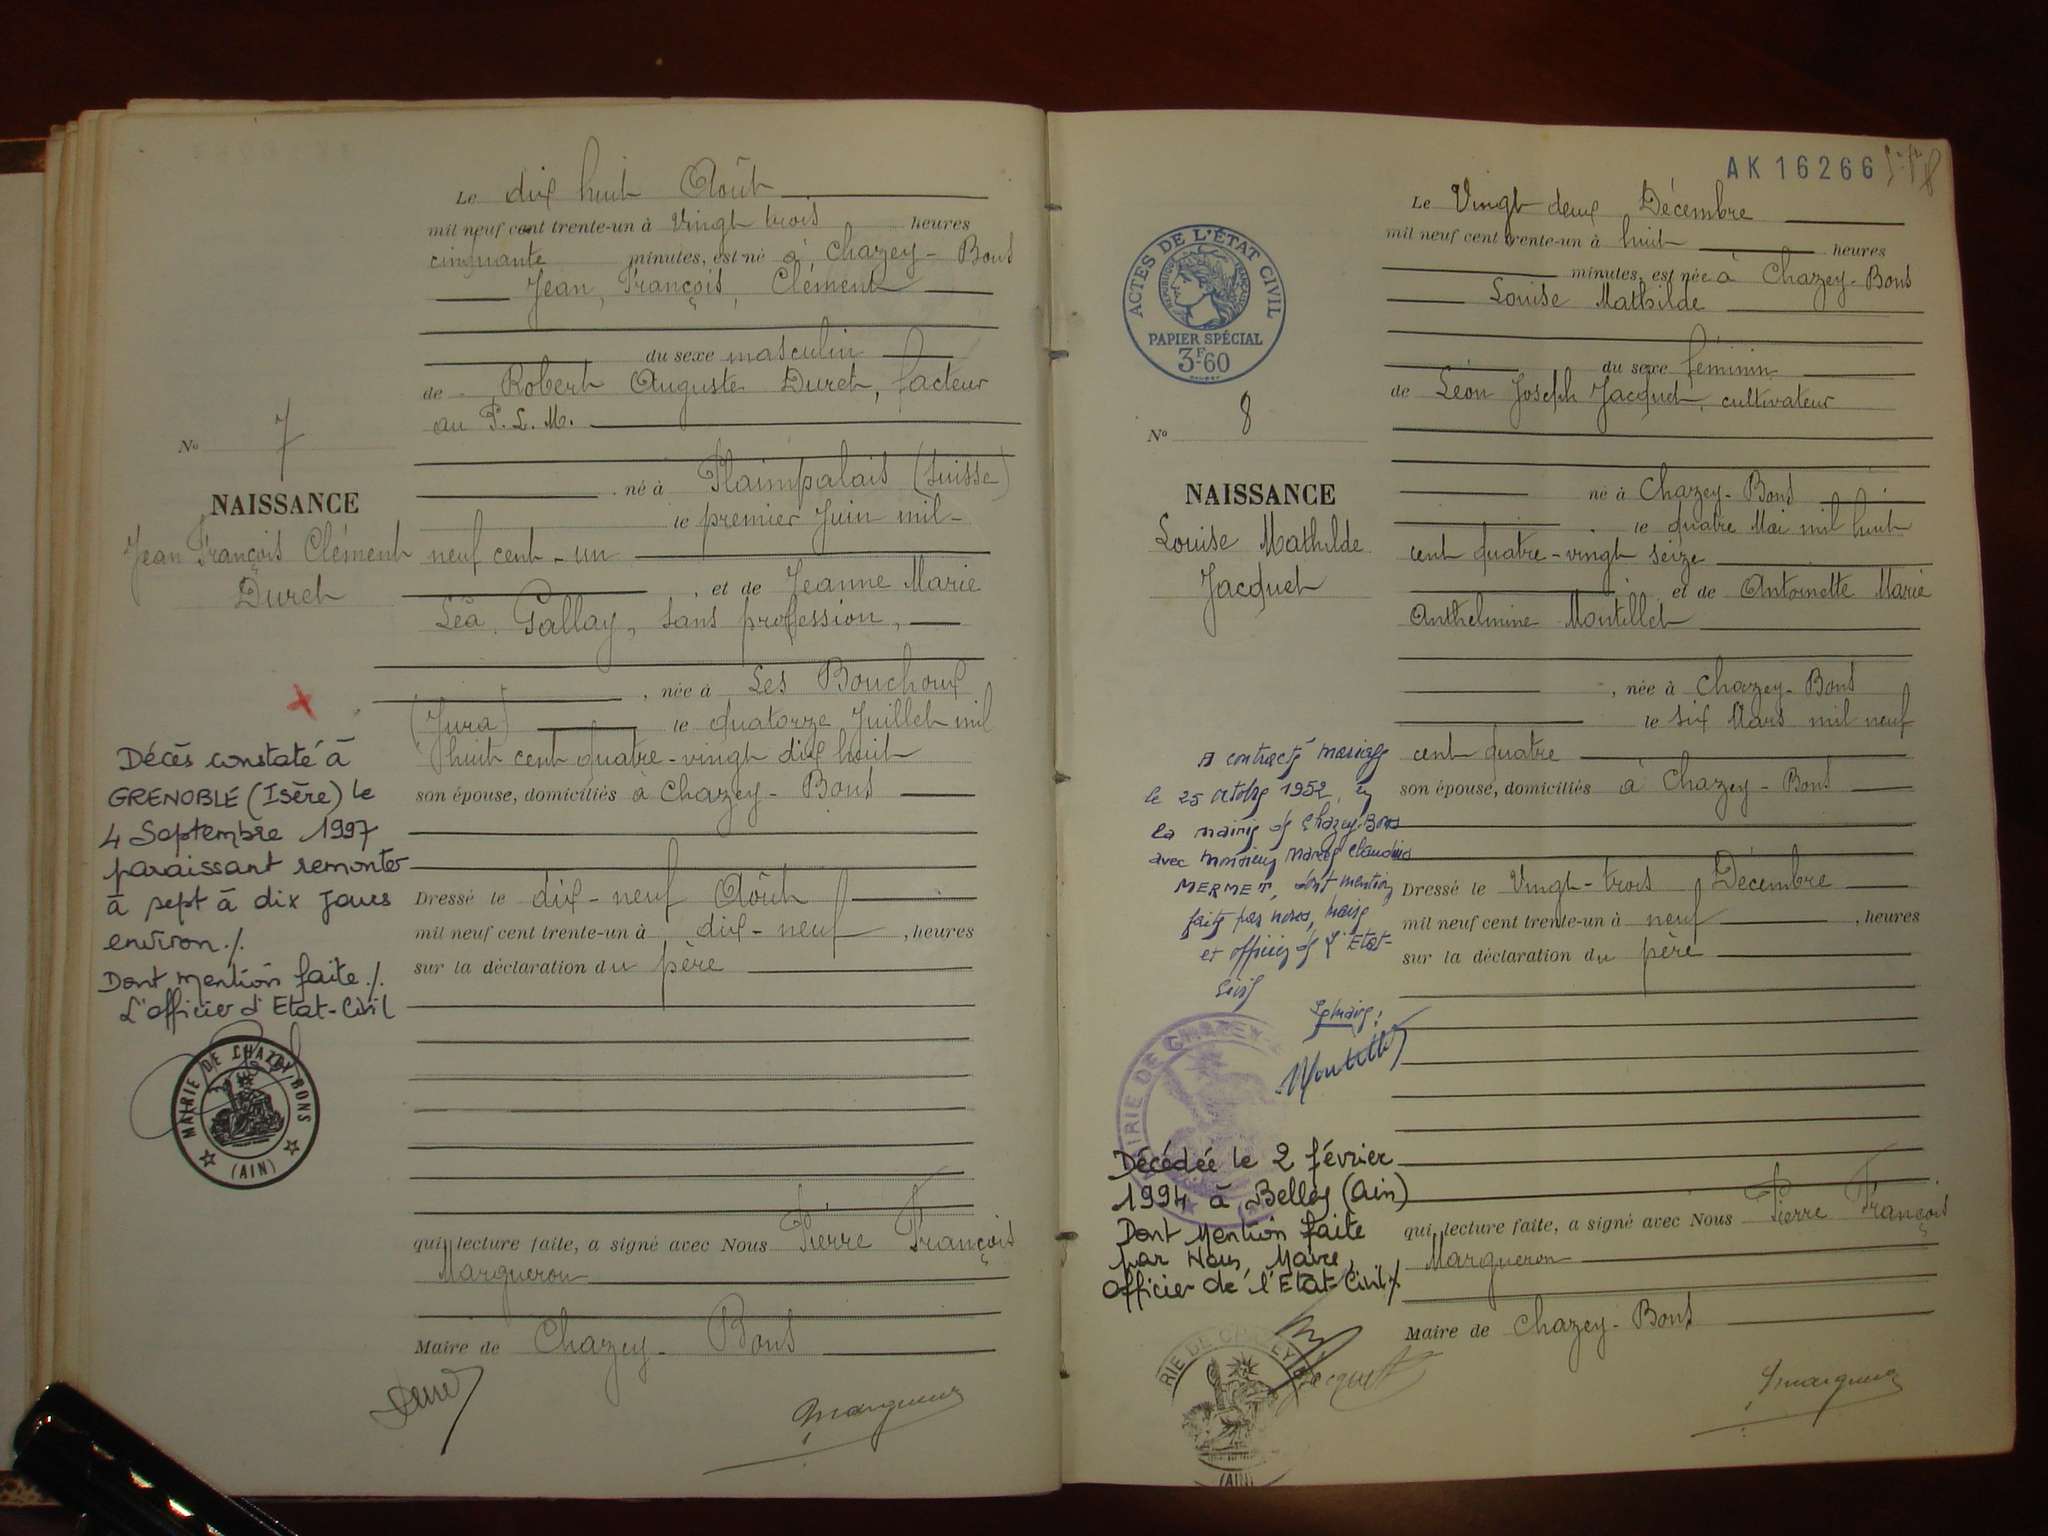 Le dix huit Août
mil neuf cent trente-un à Vingt trois heures
cinquante minutes, est né à Chazey-Bons
Jean, François, Clément
du sexe masculin
de Robert Auguste Duret, facteur
au P.L.M.
né à Plainpalais (Suisse)
le premier Juin mil-
neuf cent-un
, et de Jeanne Marie
Léa Gallay, sans profession,
, née à Les Bouchoux
(Jura) le quatorze Juillet mil
huit cent quatre-vingt dix huit
son épouse, domiciliés à Chazey-Bons
Dressé le dix-neuf Août
mil neuf cent trente-un à dix-neuf, heures
sur la déclaration du père
qui, lecture faite, a signé avec Nous Pierre François
Margueron
Maire de Chazey-Bons
Duret
Margueron
No 7
NAISSANCE
Jean François Clément
Duret
Décès constaté à
GRENOBLE (Isère) le
4 Septembre 1997
paraissant remonter
à sept à dix jours
environ./.
Dont mention faite./.
L'officier d'Etat-Civil
MAIRIE DE CHAZEY-BONS
(AIN)
AK 16266
ACTES DE L'ÉTAT CIVIL
RÉPUBLIQUE FRANÇAISE
PAPIER SPÉCIAL
3F.60
No 8
NAISSANCE
Louise Mathilde
Jacquet
Le Vingt deux Décembre
mil neuf cent trente-un à huit heures
minutes, est née à Chazey-Bons
Louise Mathilde
du sexe féminin
de Léon Joseph Jacquet, cultivateur
né à Chazey-Bons
le quatre Mai mil huit
cent quatre-vingt seize
et de Antoinette Marie
Anthelmine Montillet
, née à Chazey-Bons
le six Mars mil neuf
cent quatre
son épouse, domiciliés à Chazey-Bons
Dressé le Vingt-trois Décembre
mil neuf cent trente-un à neuf, heures
sur la déclaration du père
qui, lecture faite, a signé avec Nous Pierre François
Margueron
Maire de Chazey-Bons
Jacquet
Margueron
A contracté mariage
le 25 octobre 1952, en
la mairie de Chazey-Bons
avec monsieur Marcel Claudius
MERMET, dont mention
faite par nous, maire
et officier de l'Etat-
Civil
Le maire:
Montillet
MAIRIE DE CHAZEY
Décédée le 2 février
1994 à Belley (Ain)
Dont Mention faite
par Nous, Maire,
Officier de l'Etat-Civil./.
RIE DE CHAZEY
(AIN)